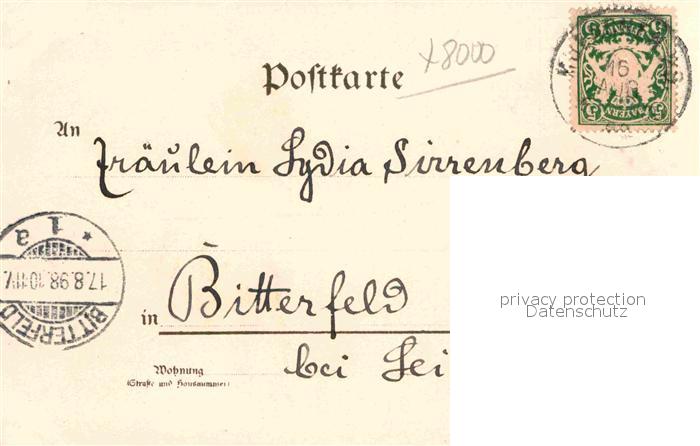 x8000
Postkarte
16
AUG
BAYERN
5 5
An
Fräulein Lydia Sirrenberg
* 1 a
17.8.98.10-11V.
BITTERFELD
in Bitterfeld
bei Lei
Wohnung
(Straße und Hausnummer)
privacy protection
Datenschutz